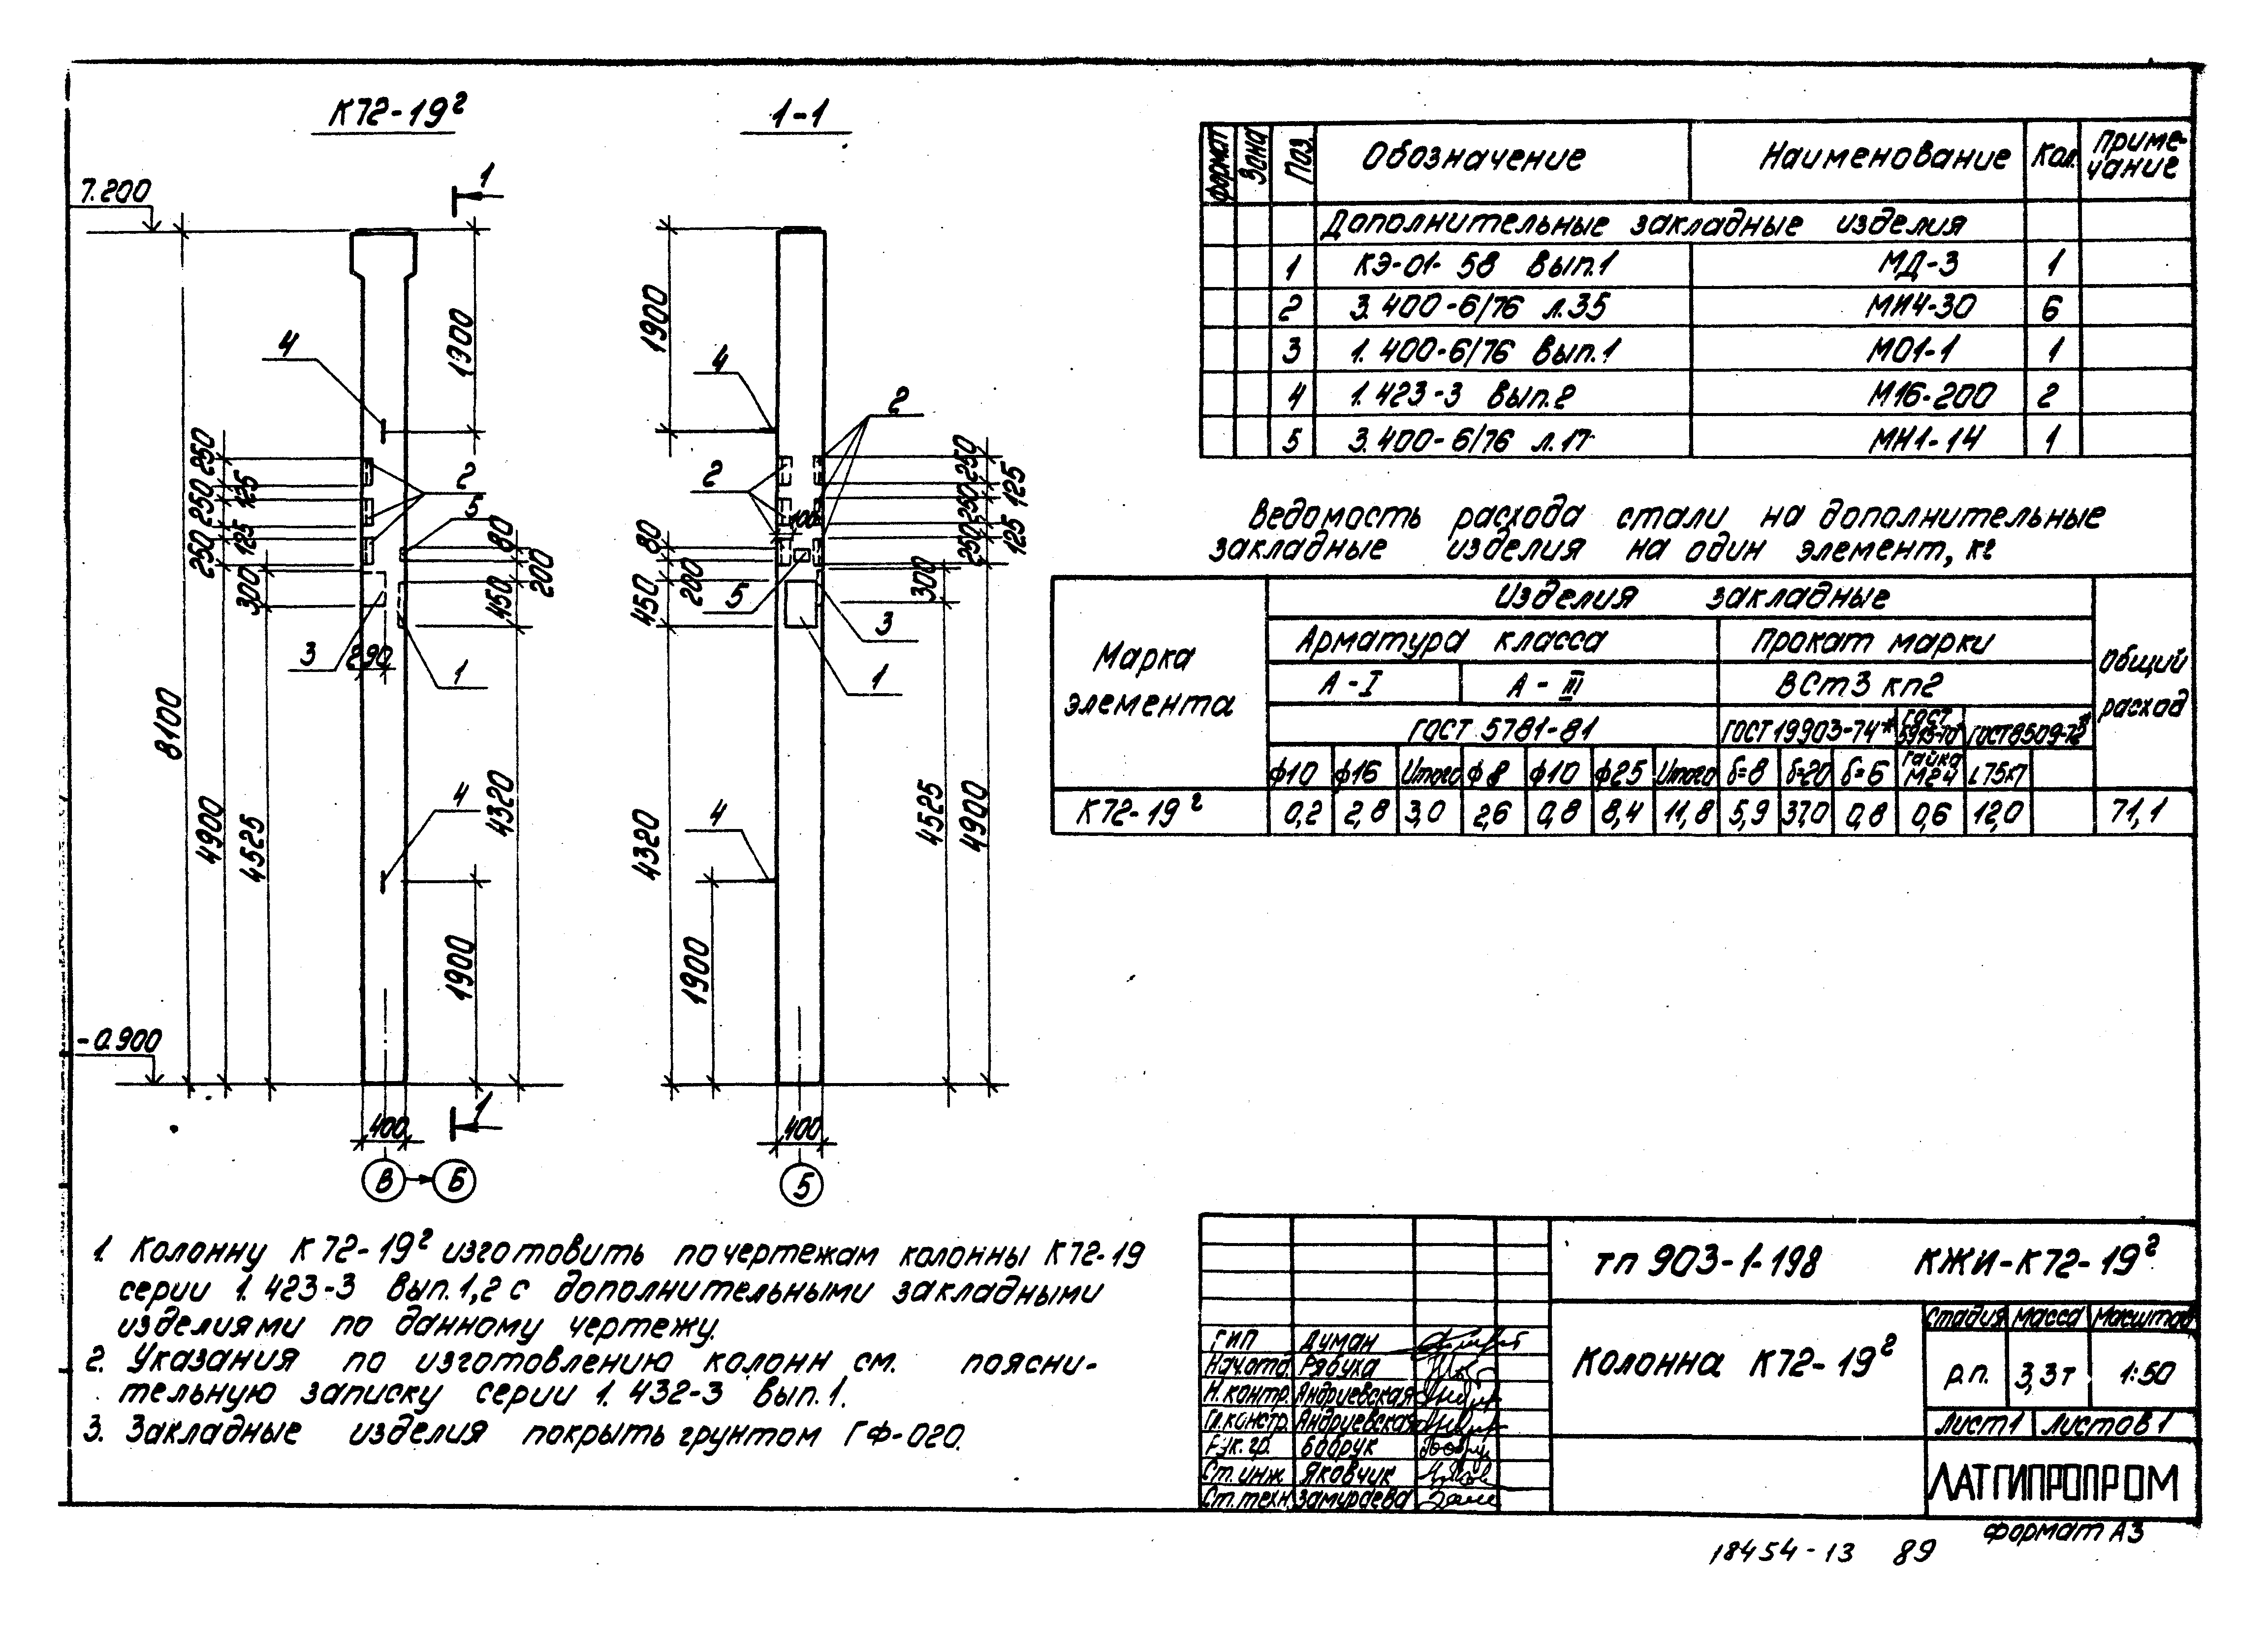 К72-19г
1-1
1
7.200
4
1900
250
125
250
125
250
300
2
5
80
200
450
3
290
1
8100
4900
4525
4320
4
1900
-0.900
1
400
В
Б
1900
4
2
2
100
250
125
250
125
250
80
200
450
5
300
3
1
4
4320
1900
4525
4900
400
5
формат Зона Поз. Обозначение Наименование Кол. Приме-
чание
Дополнительные закладные изделия
1 КЭ-01-58 вып.1 МД-3 1
2 3.400-6/76 л.35 МИ4-30 6
3 1.400-6/76 вып.1 МО1-1 1
4 1.423-3 вып.2 М16-200 2
5 3.400-6/76 л.17 МН1-14 1
Ведомость расхода стали на дополнительные
закладные изделия на один элемент, кг
Марка
элемента
Изделия закладные
Общий
расход
Арматура класса Прокат марки
А-I А-III ВСт3 кп2
ГОСТ 5781-81 ГОСТ 19903-74* ГОСТ
5915-70* ГОСТ8509-72*
ф10 ф16 Итого ф8 ф10 ф25 Итого δ=8 δ=20 δ=6 Гайка
М24 L75х7
К72-19г 0,2 2,8 3,0 2,6 0,8 8,4 11,8 5,9 37,0 0,8 0,6 12,0 71,1
1. Колонну К72-19г изготовить по чертежам колонны К72-19
серии 1.423-3 вып.1,2 с дополнительными закладными
изделиями по данному чертежу.
2. Указания по изготовлению колонн см. поясни-
тельную записку серии 1.432-3 вып.1.
3. Закладные изделия покрыть грунтом ГФ-020.
тп 903-1-198 КЖИ-К72-19г
Колонна К72-19г
стадия масса масштаб
р.п. 3,3т 1:50
лист1 листов1
ЛАТГИПРОПРОМ
ГИП Думан
Нач.отд. Рябуха
Н.контр. Андриевская
Гл.констр. Андриевская
Рук.гр. Бобрук
Ст.инж. Яковчик
Ст.техн. Замураева
формат А3
18454-13 89